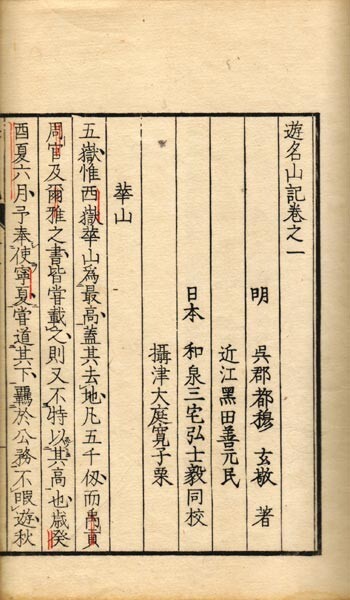 遊名山記卷之一
明 吳郡都穆 玄敬 著
近江黑田善元民
日本 和泉三宅弘士毅同校
攝津大庭寬子栗
華山
五嶽惟西嶽華山爲最高蓋其去地凡五千仭而禹貢
周官及爾雅之書皆嘗載之則又不特以其高也歲癸
酉夏六月予奉使寧夏嘗道其下羈於公務不暇遊秋